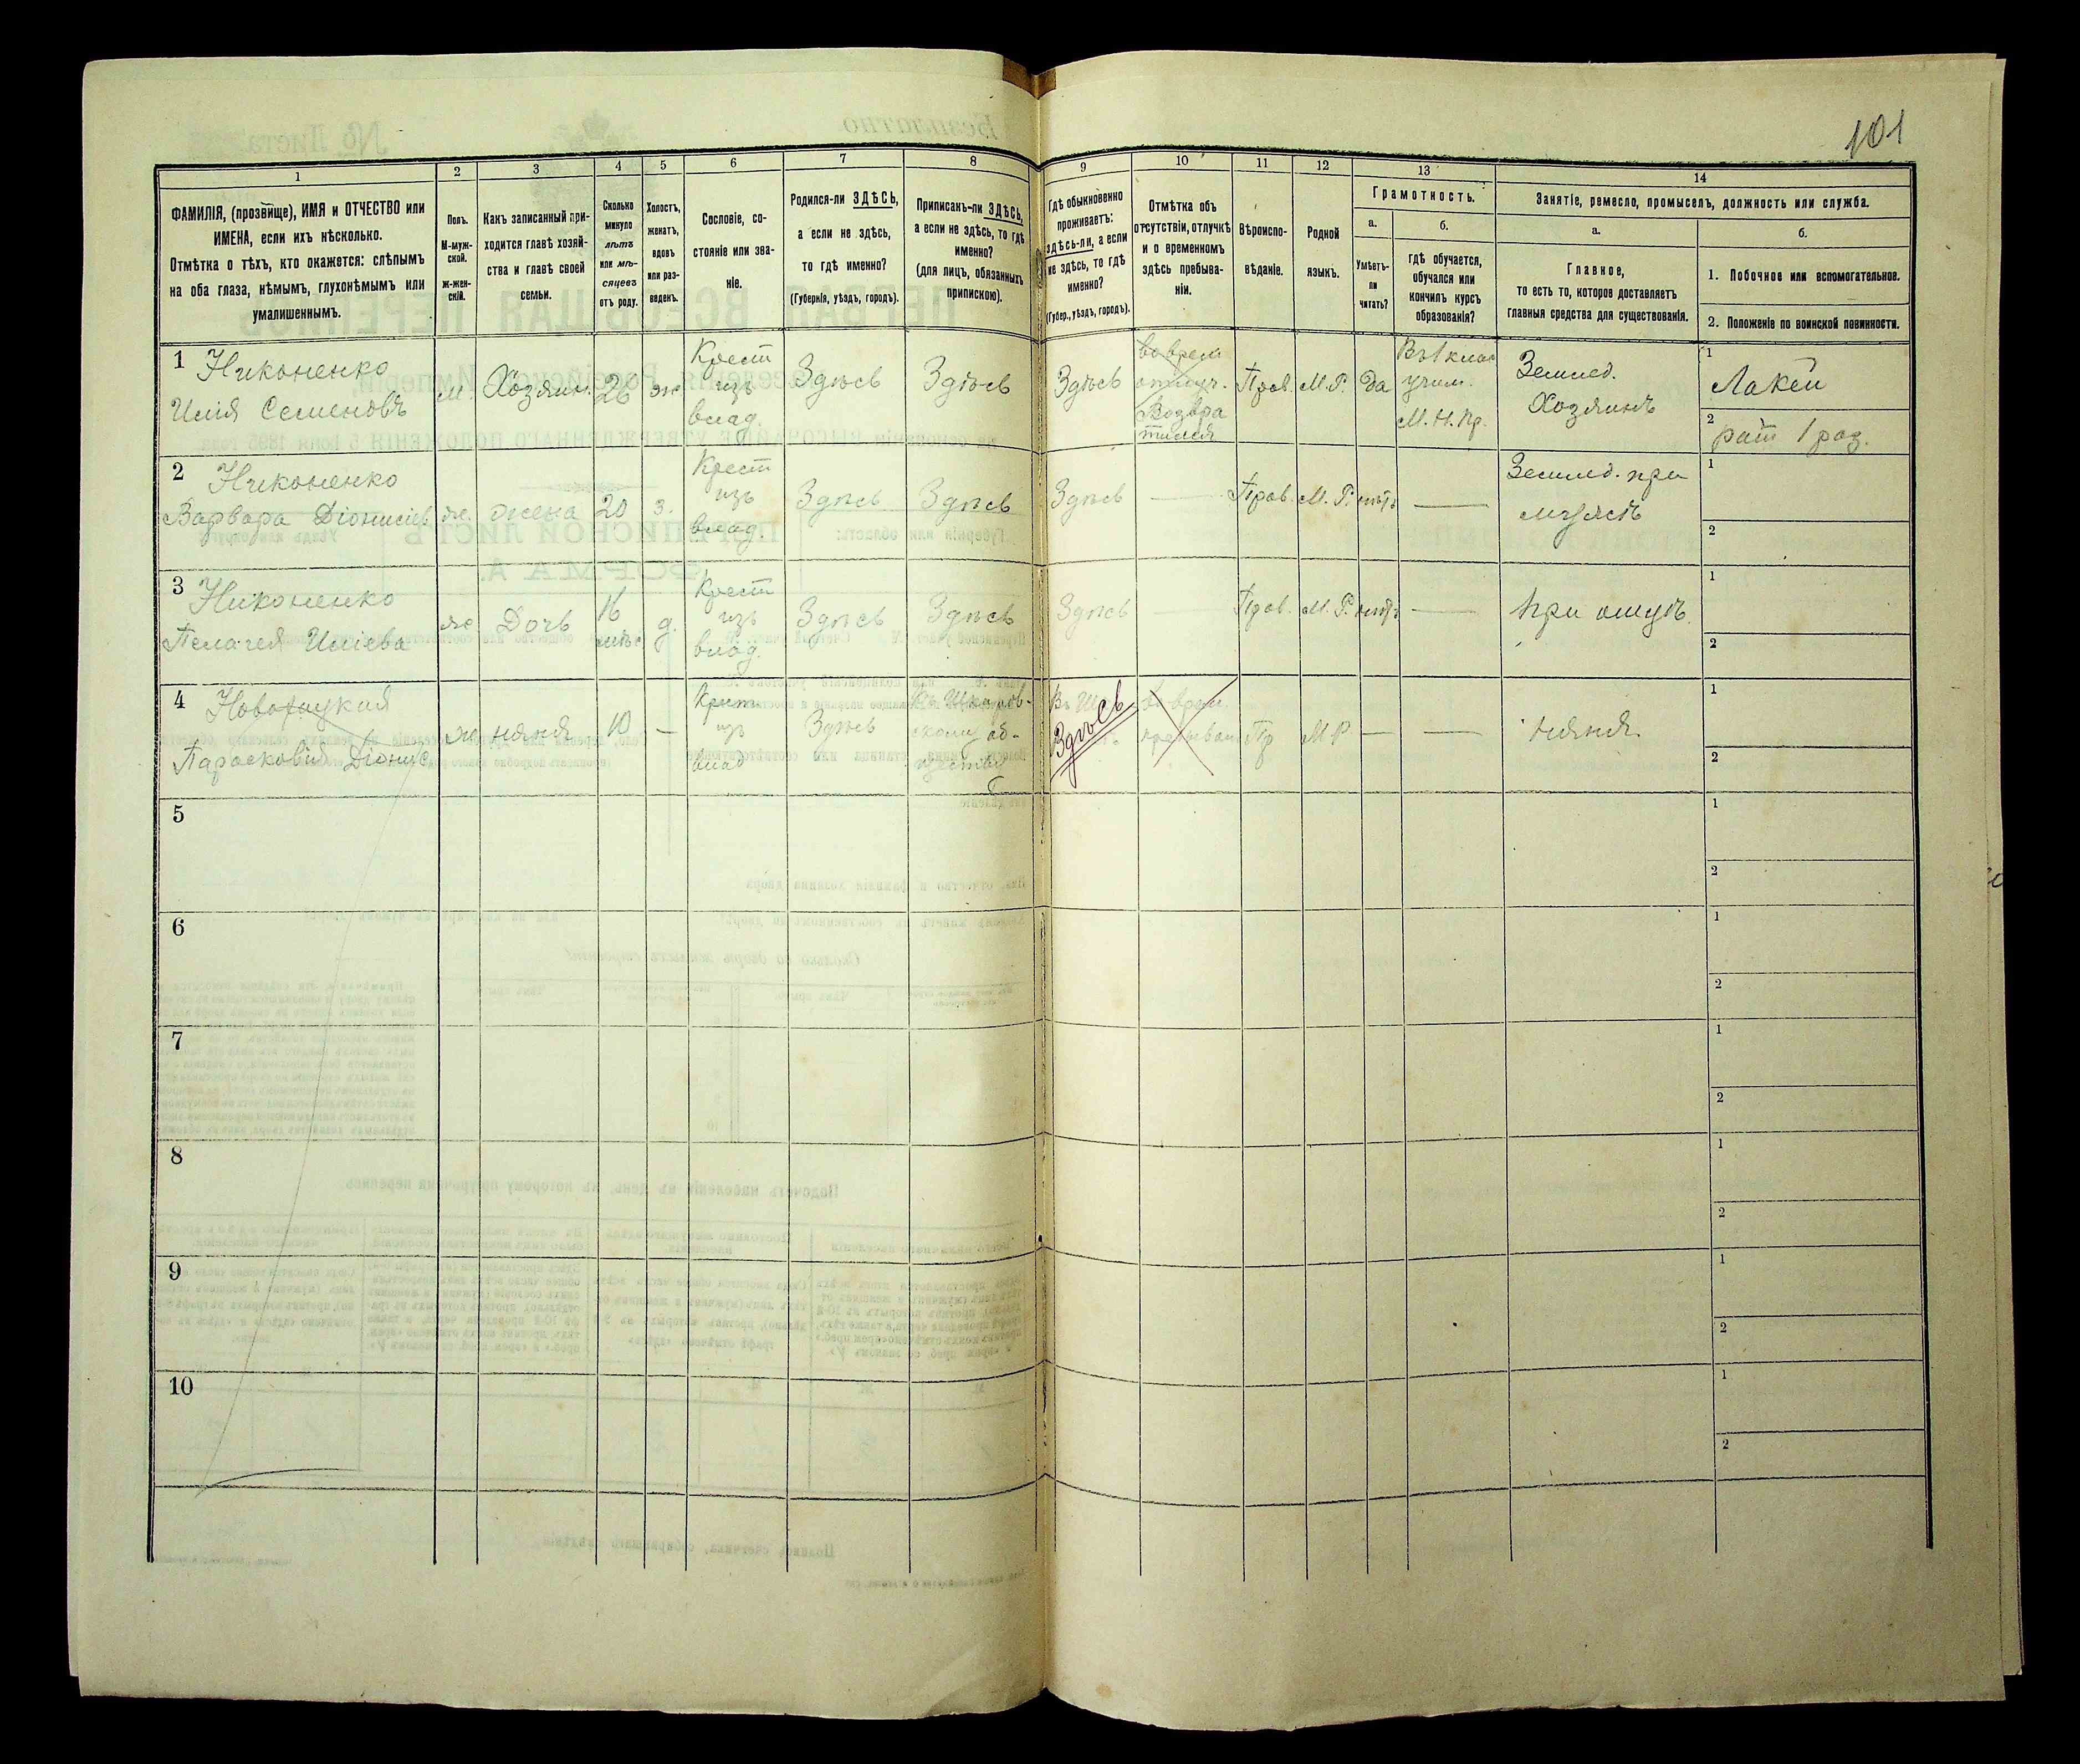 101
1
2
3
4
5
6
7
8
9
10
11
12
13
14
ФАМИЛІЯ, (прозвище), ИМЯ и ОТЧЕСТВО или
ИМЕНА, если ихъ нѣсколько.
Отмѣтка о тѣхъ, кто окажется: слѣпымъ
на оба глаза, нѣмымъ, глухонѣмымъ или
умалишеннымъ.
Полъ.
М-муж-
ской.
ж-жен-
скій.
Какъ записанный при-
ходится главѣ хозяй-
ства и главѣ своей
семьи.
Сколько
минуло
лѣтъ
или мѣ-
сяцевъ
отъ роду.
Холостъ,
женатъ,
вдовъ
или раз-
веденъ.
Сословіе, со-
стояніе или зва-
ніе.
Родился-ли ЗДѢСЬ,
а если не здѣсь,
то гдѣ именно?
(Губернія, уѣздъ, городъ).
Приписанъ-ли ЗДѢСЬ,
а если не здѣсь, то гдѣ
именно?
(для лицъ, обязанныхъ
припискою).
Гдѣ обыкновенно
проживаетъ:
здѣсь-ли, а если
не здѣсь, то гдѣ
именно?
(Губер., уѣздъ, городъ).
Отмѣтка объ
отсутствіи, отлучкѣ
и о временномъ
здѣсь пребыва-
ніи.
Вѣроиспо-
вѣданіе.
Родной
языкъ.
Грамотность.
а.
б.
Умѣетъ-
ли
читать?
гдѣ обучается,
обучался или
кончилъ курсъ
образованія?
Занятіе, ремесло, промыселъ, должность или служба.
а.
б.
Главное,
то есть то, которое доставляетъ
главныя средства для существованія.
1. Побочное или вспомогательное.
2. Положеніе по воинской повинности.
1 Никоненко
Илія Семеновъ
м.
Хозяин.
26
ж
Крест
изъ
влад.
Здѣсь
Здѣсь
Здѣсь
во врем
отлуч.
Возвра
тился
Прав.
М.Р.
Да
Въ 1 клас
учил.
М.Н.Пр.
Землед.
Хозяинъ
1
Лакей
2
рат 1 раз.
2 Никоненко
Варвара Діонисіев.
же.
жена
20
з.
Крест
изъ
влад.
Здѣсь
Здѣсь
Здѣсь
—
Прав.
М.Р.
нѣтъ
—
Землед. при
мужѣ
1
2
3 Никоненко
Пелагея Иліева
же
Дочь
16
мѣс
д.
Крест
изъ
влад.
Здѣсь
Здѣсь
Здѣсь
—
Прав.
М.Р.
нѣтъ
—
при отцѣ.
1
2
4
Парасковія Діонис
ж
няня
10
—
Крест
изъ
влад
Здѣсь
об-
Здѣсь
во врем.
Пр
М Р
—
—
няня.
1
2
5
1
2
6
1
2
7
1
2
8
1
2
9
1
2
10
1
2